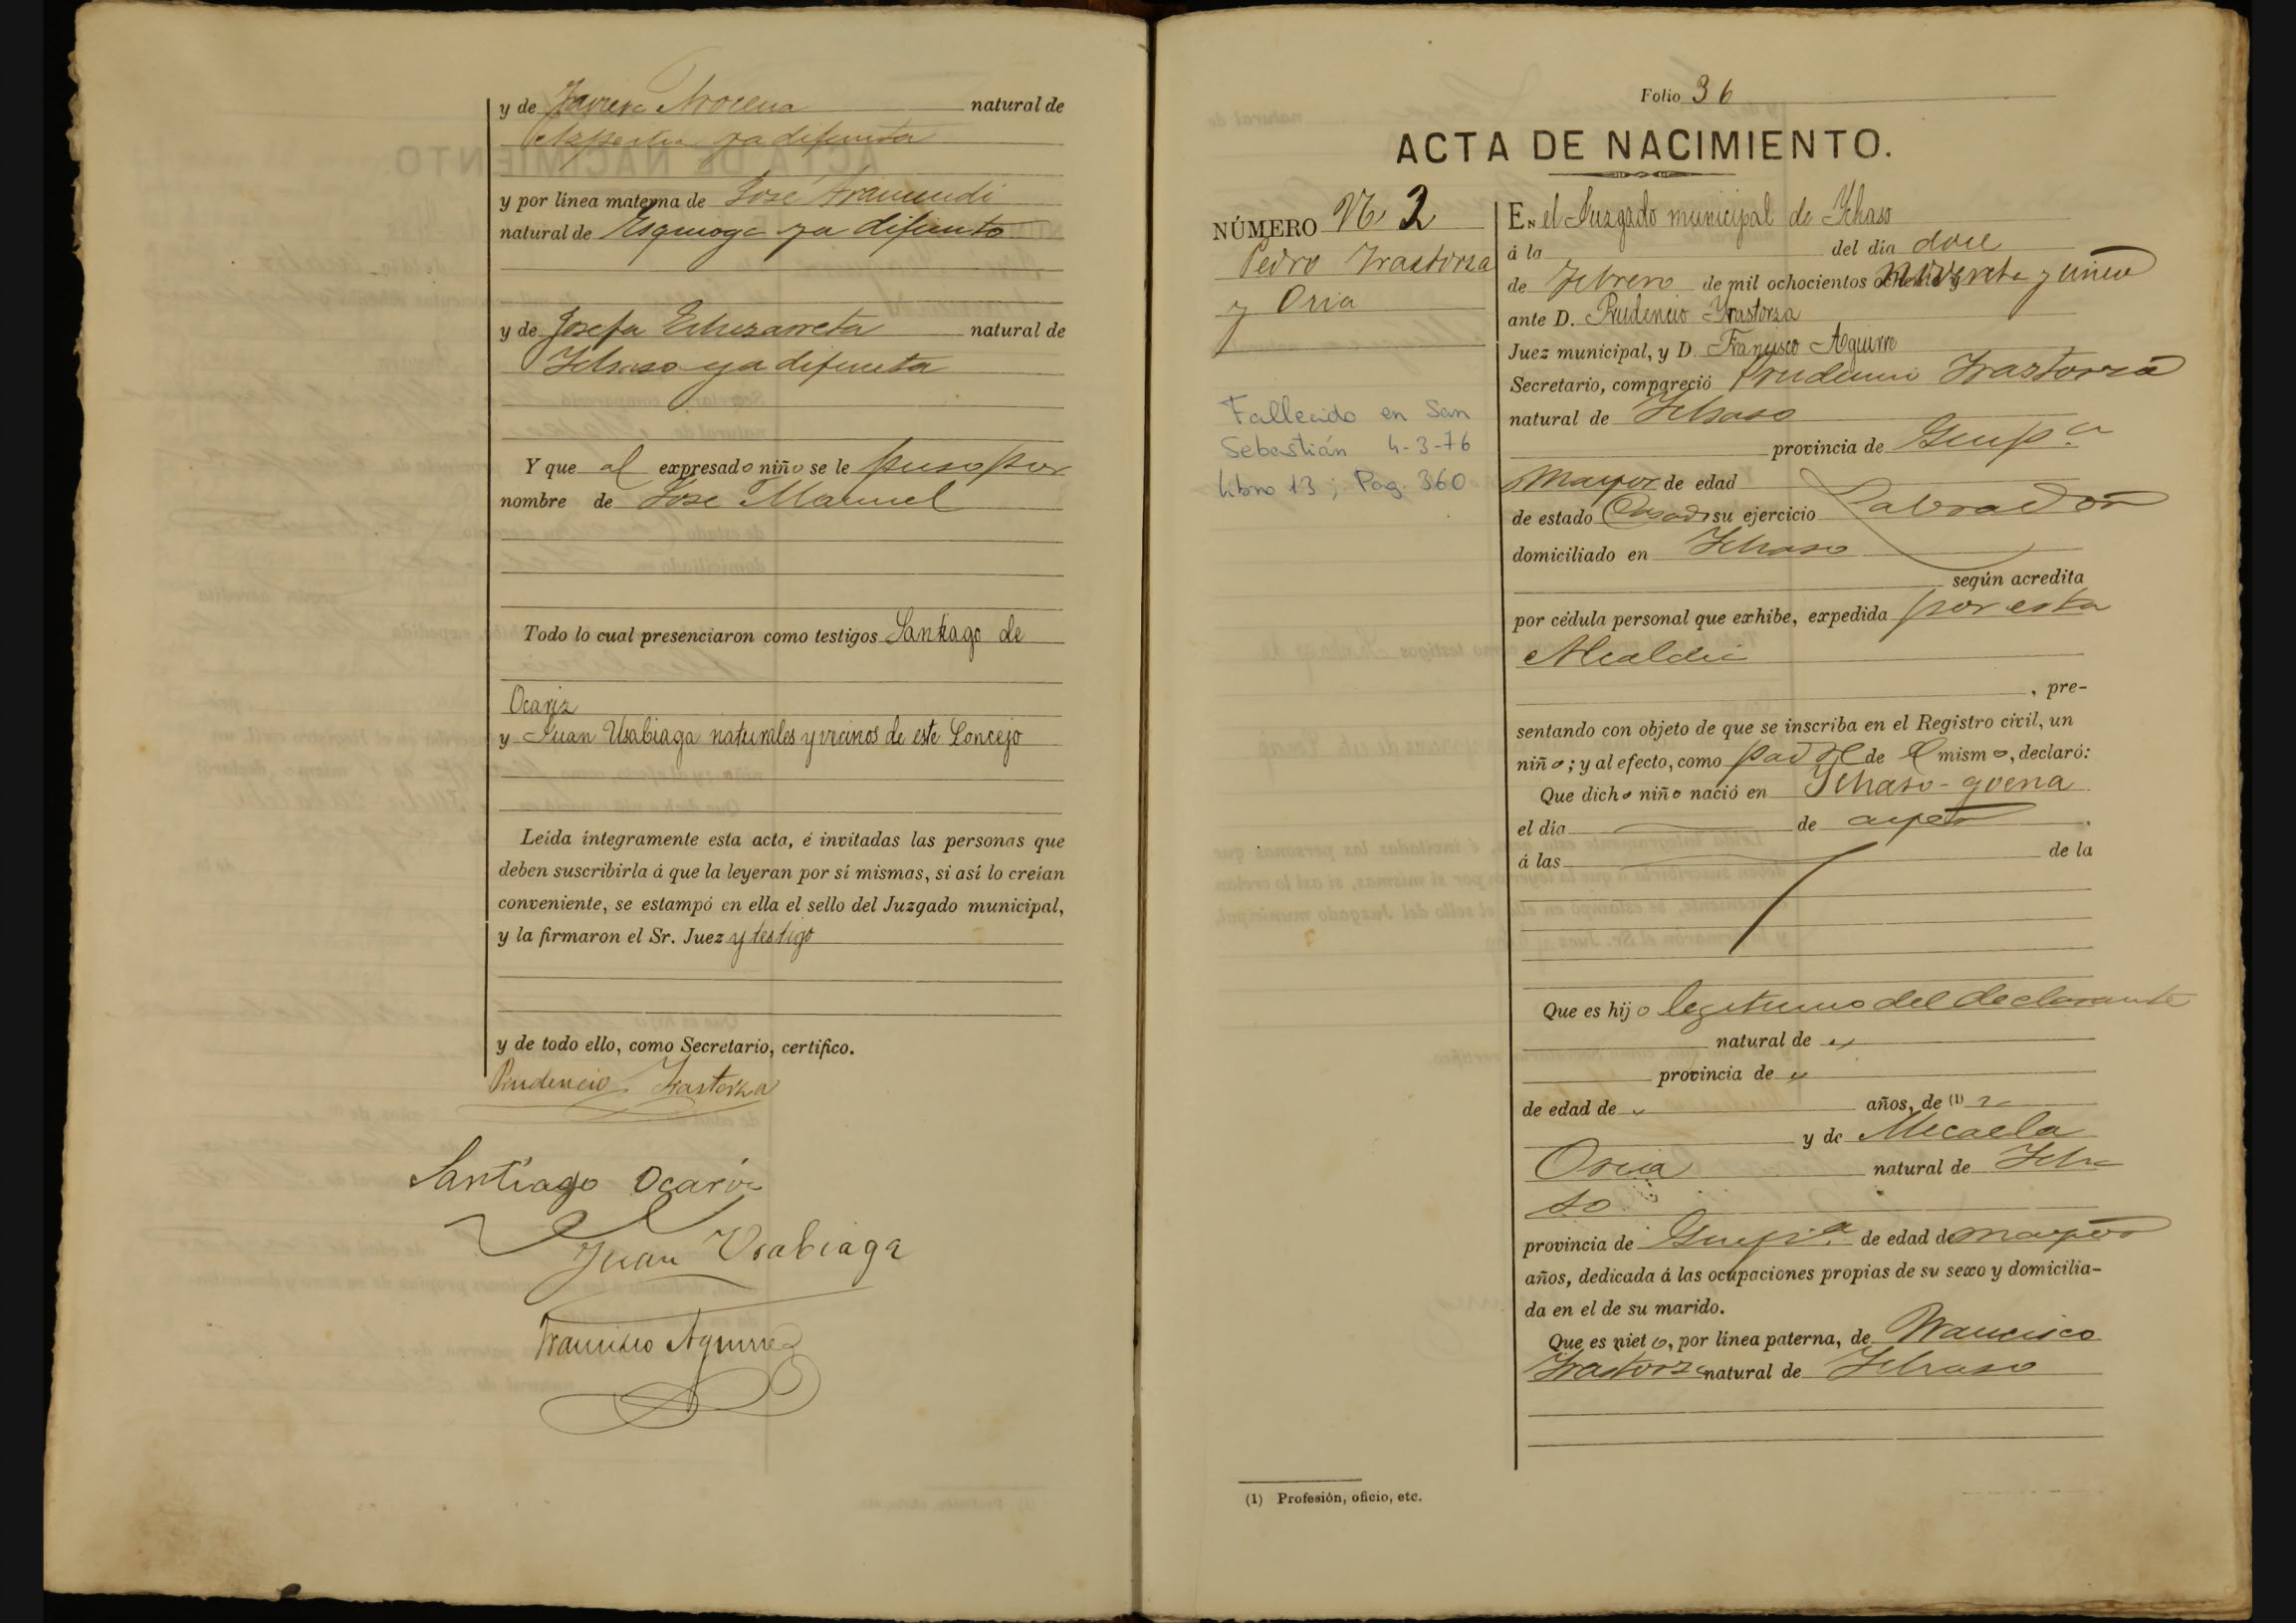 y de Javiera Arocena natural de
Azpeitia ya difunta
y por línea materna de José Aramendi
natural de Esquioga ya difunto
y de Josefa Echezarreta natural de
Ichaso ya difunta
Y que al expresado niño se le puso por
nombre de José Manuel
Todo lo cual presenciaron como testigos Santiago de
Ocariz
y Juan Usabiaga naturales y vecinos de este Concejo
Leída íntegramente esta acta, é invitadas las personas que
deben suscribirla á que la leyeran por sí mismas, si así lo creían
conveniente, se estampó en ella el sello del Juzgado municipal,
y la firmaron el Sr. Juez y testigo
y de todo ello, como Secretario, certifico.
Prudencio Irastorza
Santiago Ocariz
Juan Usabiaga
Francisco Aguirre
Folio 36
ACTA DE NACIMIENTO.
NÚMERO Nº 2
Pedro Irastorza
y Oria
Fallecido en San
Sebastián 4-3-76
Libro 13; Pag. 360
En el Juzgado municipal de Ichaso
á la del día doce
de Febrero de mil ochocientos noventa y cinco
ante D. Prudencio Irastorza
Juez municipal, y D. Francisco Aguirre
Secretario, compareció Prudencio Irastorza
natural de Ichaso
provincia de Guip.a
mayor de edad
de estado Casado su ejercicio Labrador
domiciliado en Ichaso
según acredita
por cédula personal que exhibe, expedida por esta
Alcaldia
, pre-
sentando con objeto de que se inscriba en el Registro civil, un
niño; y al efecto, como padre del mismo, declaró:
Que dicho niño nació en Ichaso-goena
el día de ayer
á las de la
Que es hijo legitimo del declarante
natural de "
provincia de "
de edad de " años, de (1) "
y de Micaela
Oria natural de Icha
so
provincia de Guip.a de edad de mayor
años, dedicada á las ocupaciones propias de su sexo y domicilia-
da en el de su marido.
Que es nieto, por línea paterna, de Francisco
Irastorza natural de Ichaso
(1) Profesión, oficio, etc.